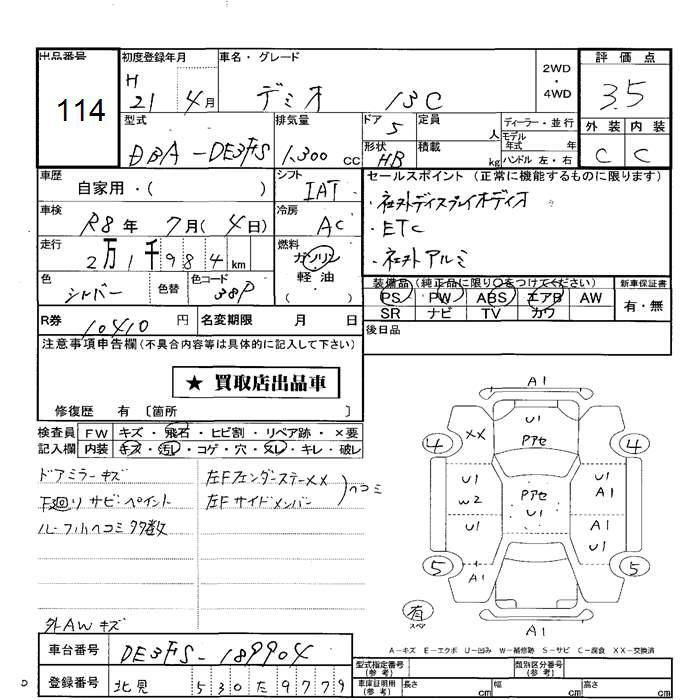 出品番号
114
初度登録年月
H 21 4月
車名・グレード
デミオ 13C
2WD
・
4WD
評価点
3.5
型式
DBA-DE3FS
排気量
1,300 cc
ドア 5
定員 人
ディーラー・並行
モデル年式 年
形状 HB
積載 kg
ハンドル 左・右
外装 内装
C C
車歴
自家用・( )
シフト
IAT
セールスポイント (正常に機能するものに限ります)
・社外ディスプレイオーディオ
・ETC
・社外アルミ
車検
R8年 7月(4日)
冷房
AC
走行
2万1千984km
燃料
ガソリン
軽油
( )
色
シルバー
色替
色コード
38P
装備品(純正品に限り○をつけてください)
新車保証書
PS PW ABS エアB AW
有・無
SR ナビ TV カワ
R券 10410円
名変期限 月 日
後日品
注意事項申告欄(不具合内容等は具体的に記入して下さい)
★ 買取店出品車
修復歴 有 〔箇所 〕
検査員 FW キズ・飛石・ヒビ割・リペア跡・×要
記入欄 内装 キズ・汚レ・コゲ・穴・スレ・キレ・破レ
ドアミラーキズ
下廻りサビ・ペイント
ルーフ小ヘコミ多数
左FフェンダーステーXX
左Fサイドメンバー
ヘコミ
外AWキズ
A1
U1
アセ
XX
4
4
U1
W2
アセ
U1
U1
A1
U1
A1
U1
5
5
A1
有
スペア
A1
A-キズ E-エクボ U-凹み W-補修跡 S-サビ C-腐食 XX-交換済
車台番号 DE3FS-189904
登録番号 北見 530 た 9779
型式指定番号(参考)
類別区分番号(参考)
車庫証明用(参考) 長さ cm 幅 cm 高さ cm